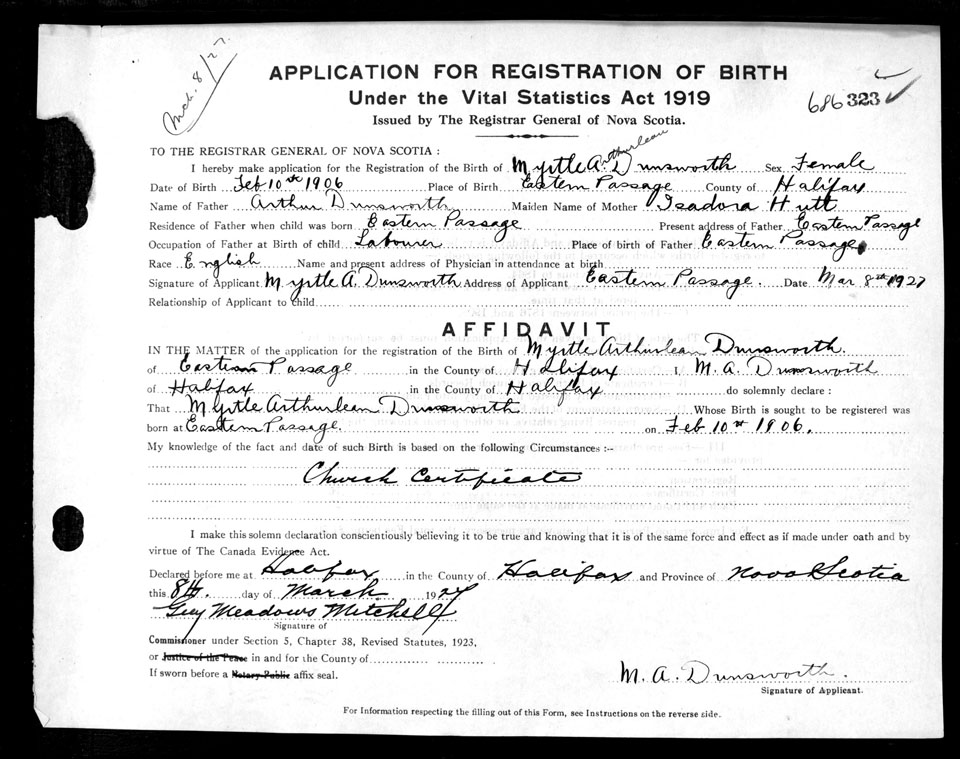 Mch. 8/27.
APPLICATION FOR REGISTRATION OF BIRTH
Under the Vital Statistics Act 1919
686 323
Issued by The Registrar General of Nova Scotia.
TO THE REGISTRAR GENERAL OF NOVA SCOTIA :
Arthurlean
I hereby make application for the Registration of the Birth of Myrtle A. Dunsworth Sex Female
Date of Birth Feb 10th 1906 Place of Birth Eastern Passage County of Halifax
Name of Father Arthur Dunsworth Maiden Name of Mother Isadora Hutt
Residence of Father when child was born Eastern Passage Present address of Father Eastern Passage
Occupation of Father at Birth of child Labourer Place of birth of Father Eastern Passage
Race English Name and present address of Physician in attendance at birth
Signature of Applicant Myrtle A. Dunsworth Address of Applicant Eastern Passage. Date Mar 8th 1927
Relationship of Applicant to child
AFFIDAVIT
IN THE MATTER of the application for the registration of the Birth of Myrtle Arthurlean Dunsworth.
of Eastern Passage in the County of Halifax I, M. A. Dunsworth
of Halifax in the County of Halifax do solemnly declare :
That Myrtle Arthurlean Dunsworth Whose Birth is sought to be registered was
born at Eastern Passage. on Feb 10th 1906.
My knowledge of the fact and date of such Birth is based on the following Circumstances :-
Church Certificate
I make this solemn declaration conscientiously believing it to be true and knowing that it is of the same force and effect as if made under oath and by
virtue of The Canada Evidence Act.
Declared before me at Halifax in the County of Halifax and Province of Nova Scotia
this 8th. day of March 1927
Guy Meadows Mitchell
Signature of
Commissioner under Section 5, Chapter 38, Revised Statutes, 1923,
or Justice of the Peace in and for the County of
If sworn before a Notary Public affix seal.
M. A. Dunsworth.
Signature of Applicant.
For Information respecting the filling out of this Form, see Instructions on the reverse side.